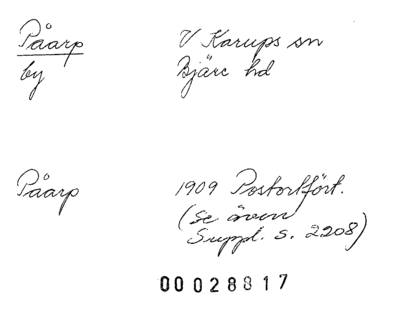 Påarp V Karups sn
by Bjäre hd
Påarp 1909 Postortfört.
(Se även
Suppl. s. 2208)
00028817